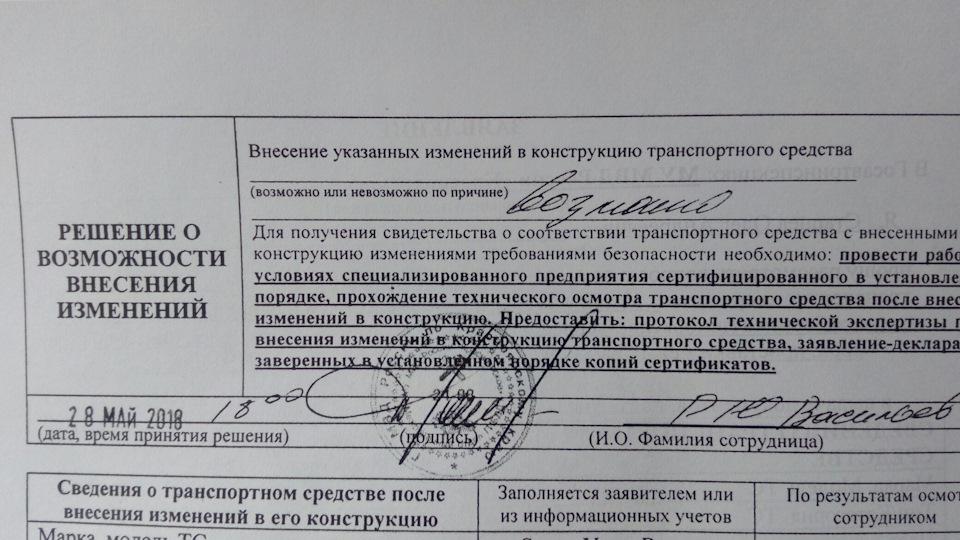 Внесение указанных изменений в конструкцию транспортного средства
(возможно или невозможно по причине) Возможно
РЕШЕНИЕ О
ВОЗМОЖНОСТИ
ВНЕСЕНИЯ
ИЗМЕНЕНИЙ
Для получения свидетельства о соответствии транспортного средства с внесенными
конструкцию изменениями требованиями безопасности необходимо: провести рабо
условиях специализированного предприятия сертифицированного в установле
порядке, прохождение технического осмотра транспортного средства после внес
изменений в конструкцию. Предоставить: протокол технической экспертизы п
внесения изменений в конструкцию транспортного средства, заявление-деклара
заверенных в установленном порядке копий сертификатов.
28 МАЙ 2018 18 00 Р Ю Васильев
(дата, время принятия решения) (подпись) (И.О. Фамилия сотрудника)
Сведения о транспортном средстве после
внесения изменений в его конструкцию
Заполняется заявителем или
из информационных учетов
По результатам осмот
сотрудником
Марка, модель ТС